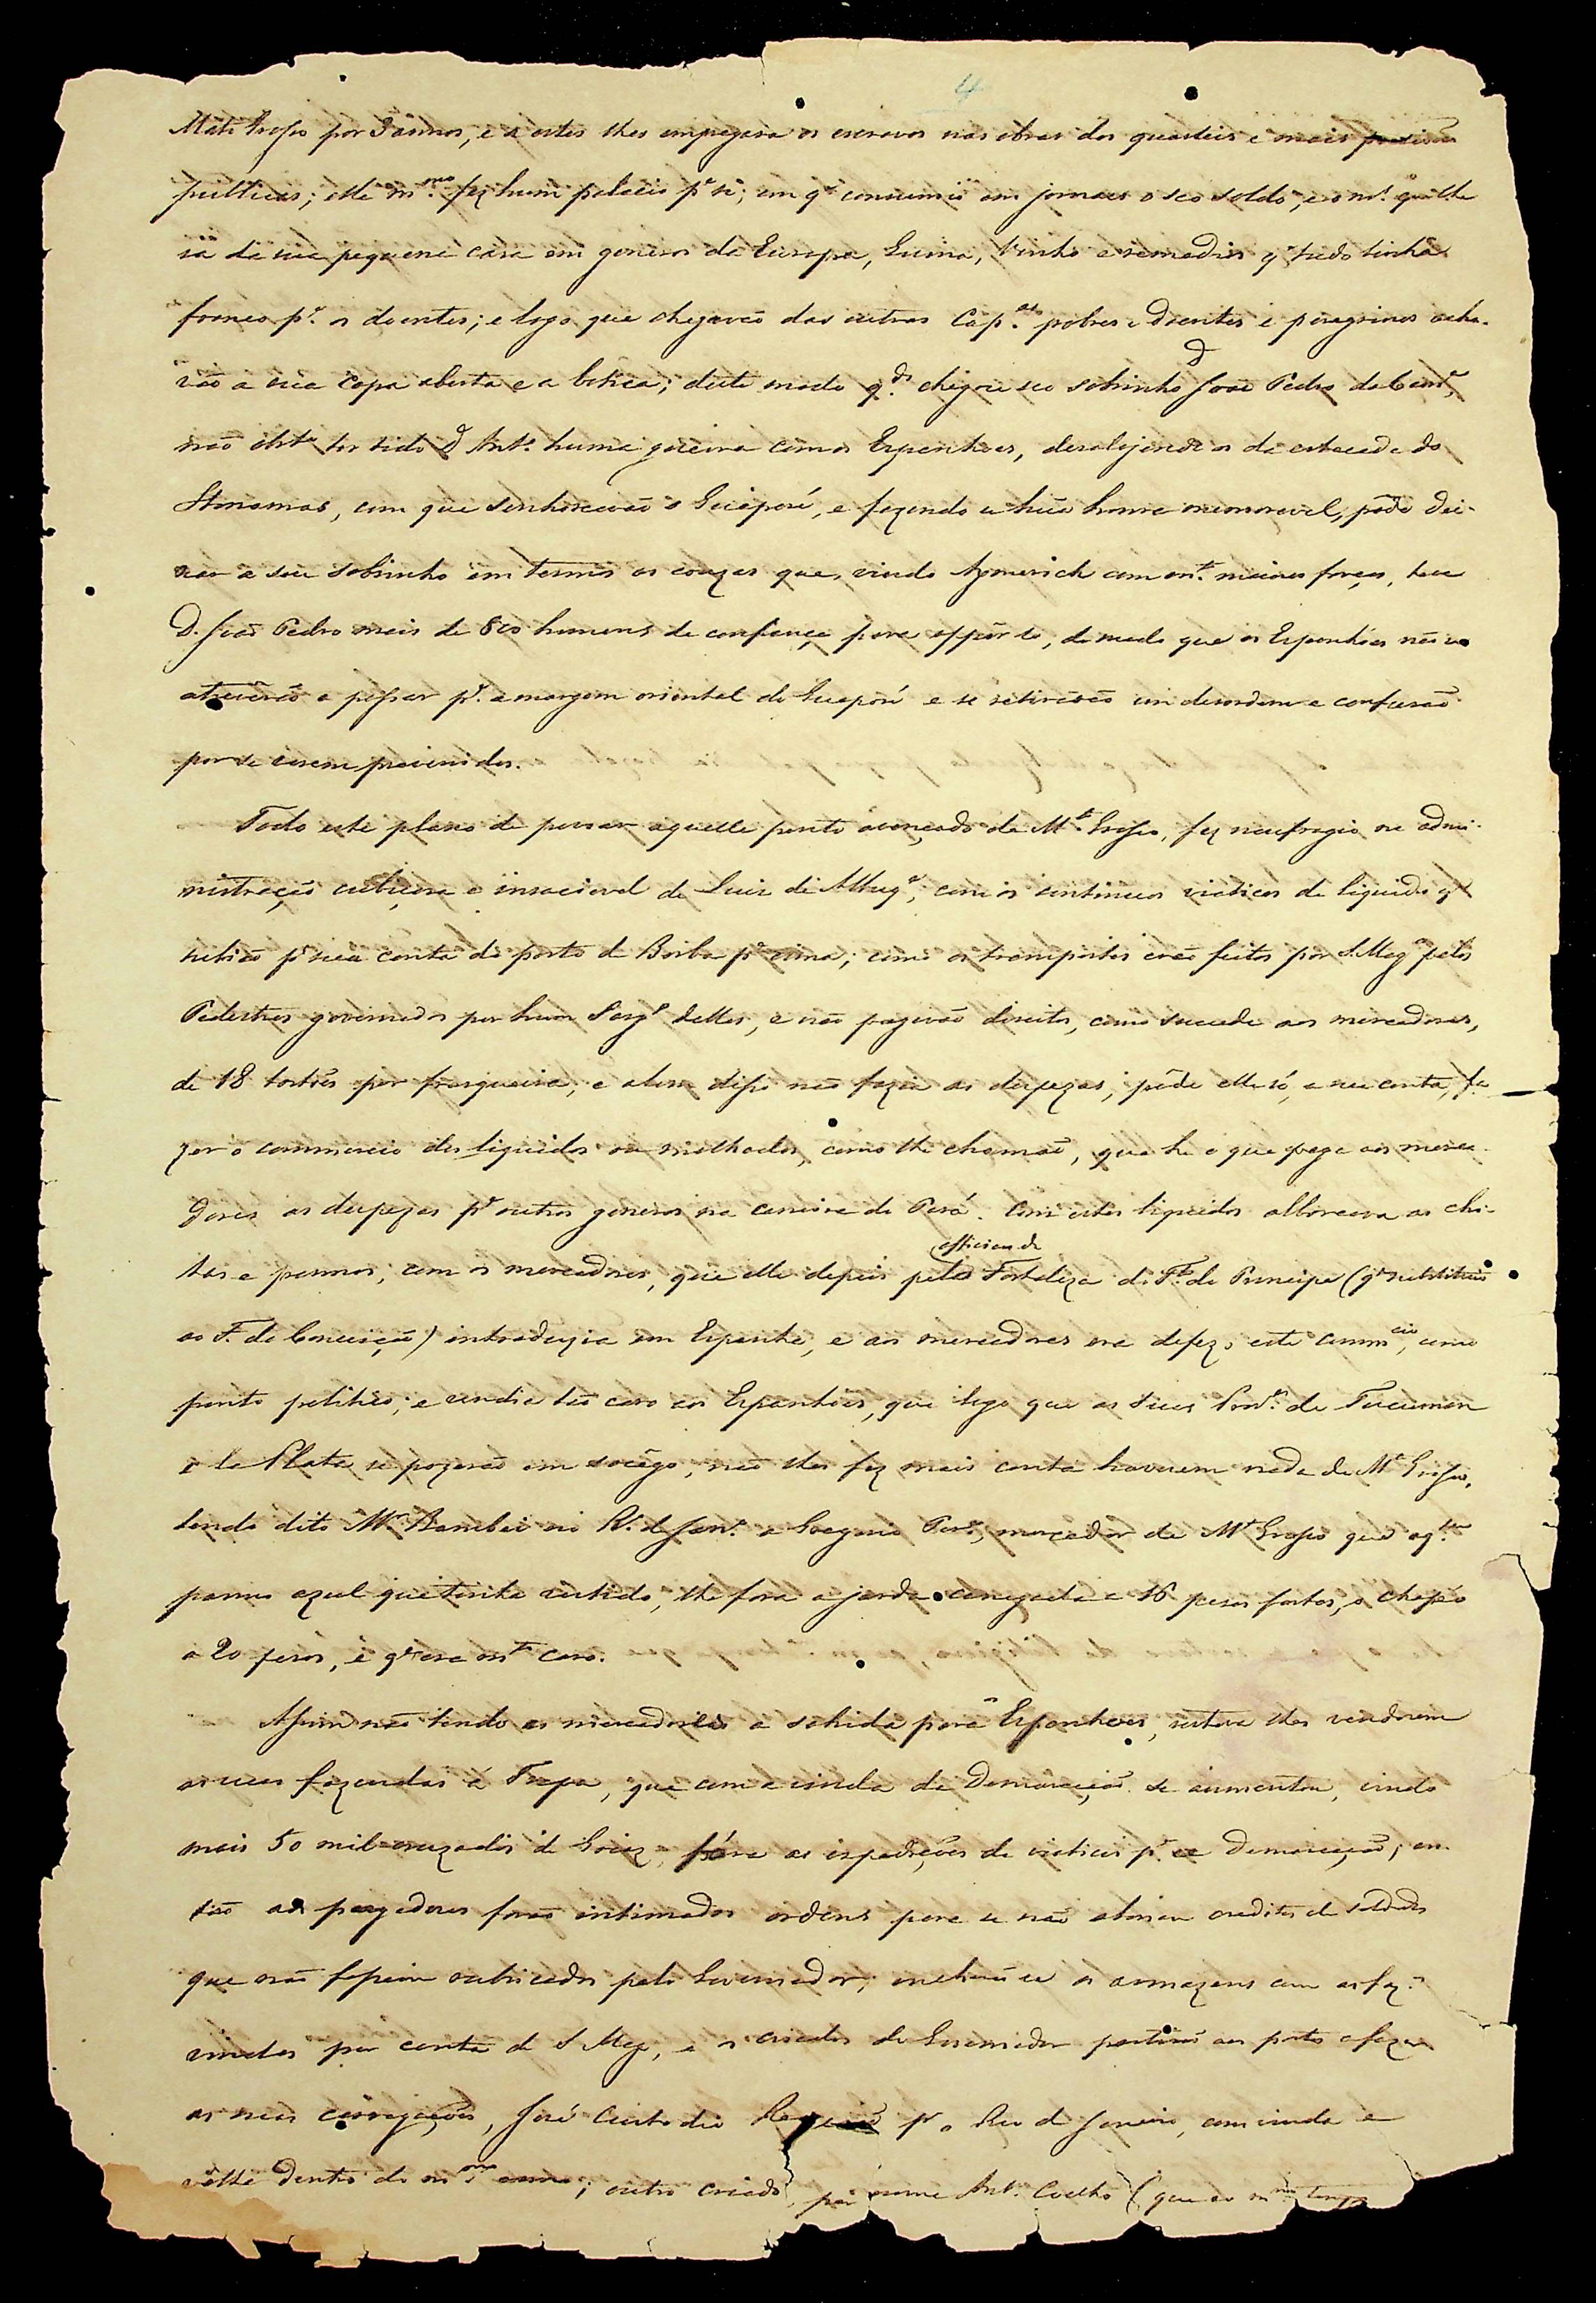 4
Mato Grosso por 3 annos, e a estes lhes empregava os escravos nas obras dos quarteis e mais
publicas; elle m.mo fez hum palacio p.a si; em q' consumio em jornaes o seo soldo, e o m.to que lhe
ia da sua pequena casa em generos da Europa, Vinho e remedios q' tudo tinha
franco p.a os doentes; e logo que chegavão das outras Cap.as pobres e doentes e peregrinos acha-
vão a sua copa aberta e a botica; deste modo q.do chegou seo sobrinho D João Pedro da Cam.a,
não obst.e ter tido D Ant.o huma guerra com os Espanhoes, desalojando os da estacada do
Itonamas, com que senhoreavão o Guaporé, e fazendo a hũa honra memoravel, pôde dei-
xar a seu sobrinho em termos as couzas que, vindo Aymerich com m.to maiores forças, teve
D. João Pedro mais de 800 homens de confiança para oppôr-lo, de modo que os Espanhóes não se
atreverão a passar p.a a margem oriental do Guaporé e se retirarão em desordem e confusão
por se verem prevenidos.
Todo este plano de povoar aquelle ponto avançado de M.to Grosso, fez naufragio na admi-
nistração cubiçosa e insaciavel de Luiz de Albuq.e, com os continuos viaticos de liquidos q'
subião p.r sua conta do porto de Borba p.a cima; como os transportes erão feitos por S. Mag.e pelos
Pedestres governados por hum Sarg.to delles, e não pagavão direitos, como succede aos mercadores,
de 18 tostões por frasqueira, e alem disso não fazia as despezas; pôde elle só, a sua conta, fa-
zer o commercio dos liquidos ou molhados, como lhe chamão, que he o que paga aos merca-
dores as despezas p.r outros generos na carreira do Pará. Com estes liquidos alboreava as chi-
tas e pannos, com os mercadores, que elle depois pelos officiaes da Fortaleza do F.e do Principe (q' substituio
ao F. da Conceição) introduzia em Espanha, e aos mercadores era defezo este comm.cio, como
ponto politico; e vendia tão caro aos Espanhóes, que logo que as suas Prov.as de Tucuman
e la Plata se pozerão em socêgo, não lhes fez mais conta haverem nada de M.to Grosso,
tendo dito M.r Barubei no R.o de Jan.ro a Gregorio Per.a, mercador de M.to Grosso que aq.le
panno azul que tinha vestido, lhe fora a jarda carregada a 16 pesos fortes, o chapéo
a 20 pesos, e q' era m.to caro.
Assim não tendo as mercadorias a sahida para os Espanhoes, restava lhes venderem
as suas fazendas á Tropa, que com a vinda da Demarcação se aumentou, vindo
mais 50 mil cruzados de Goiaz, fóra as expedições de viaticos p.a a Demarcação; en-
tão aos pagadores forão intimadas ordens para se não abrirem creditos de soldados
que não fossem rubricados pelo Governador; encherão se os armazens com as faz.as
vindas por conta de S Mag., e os criados do Governador partirão aos portos a fazer
as suas carregações, José Custodio p.a o Rio de Janeiro, com vinda e
volta dentro do m.mo anno; outro criado, por nome Ant.o Coelho (que ao m.mo tempo